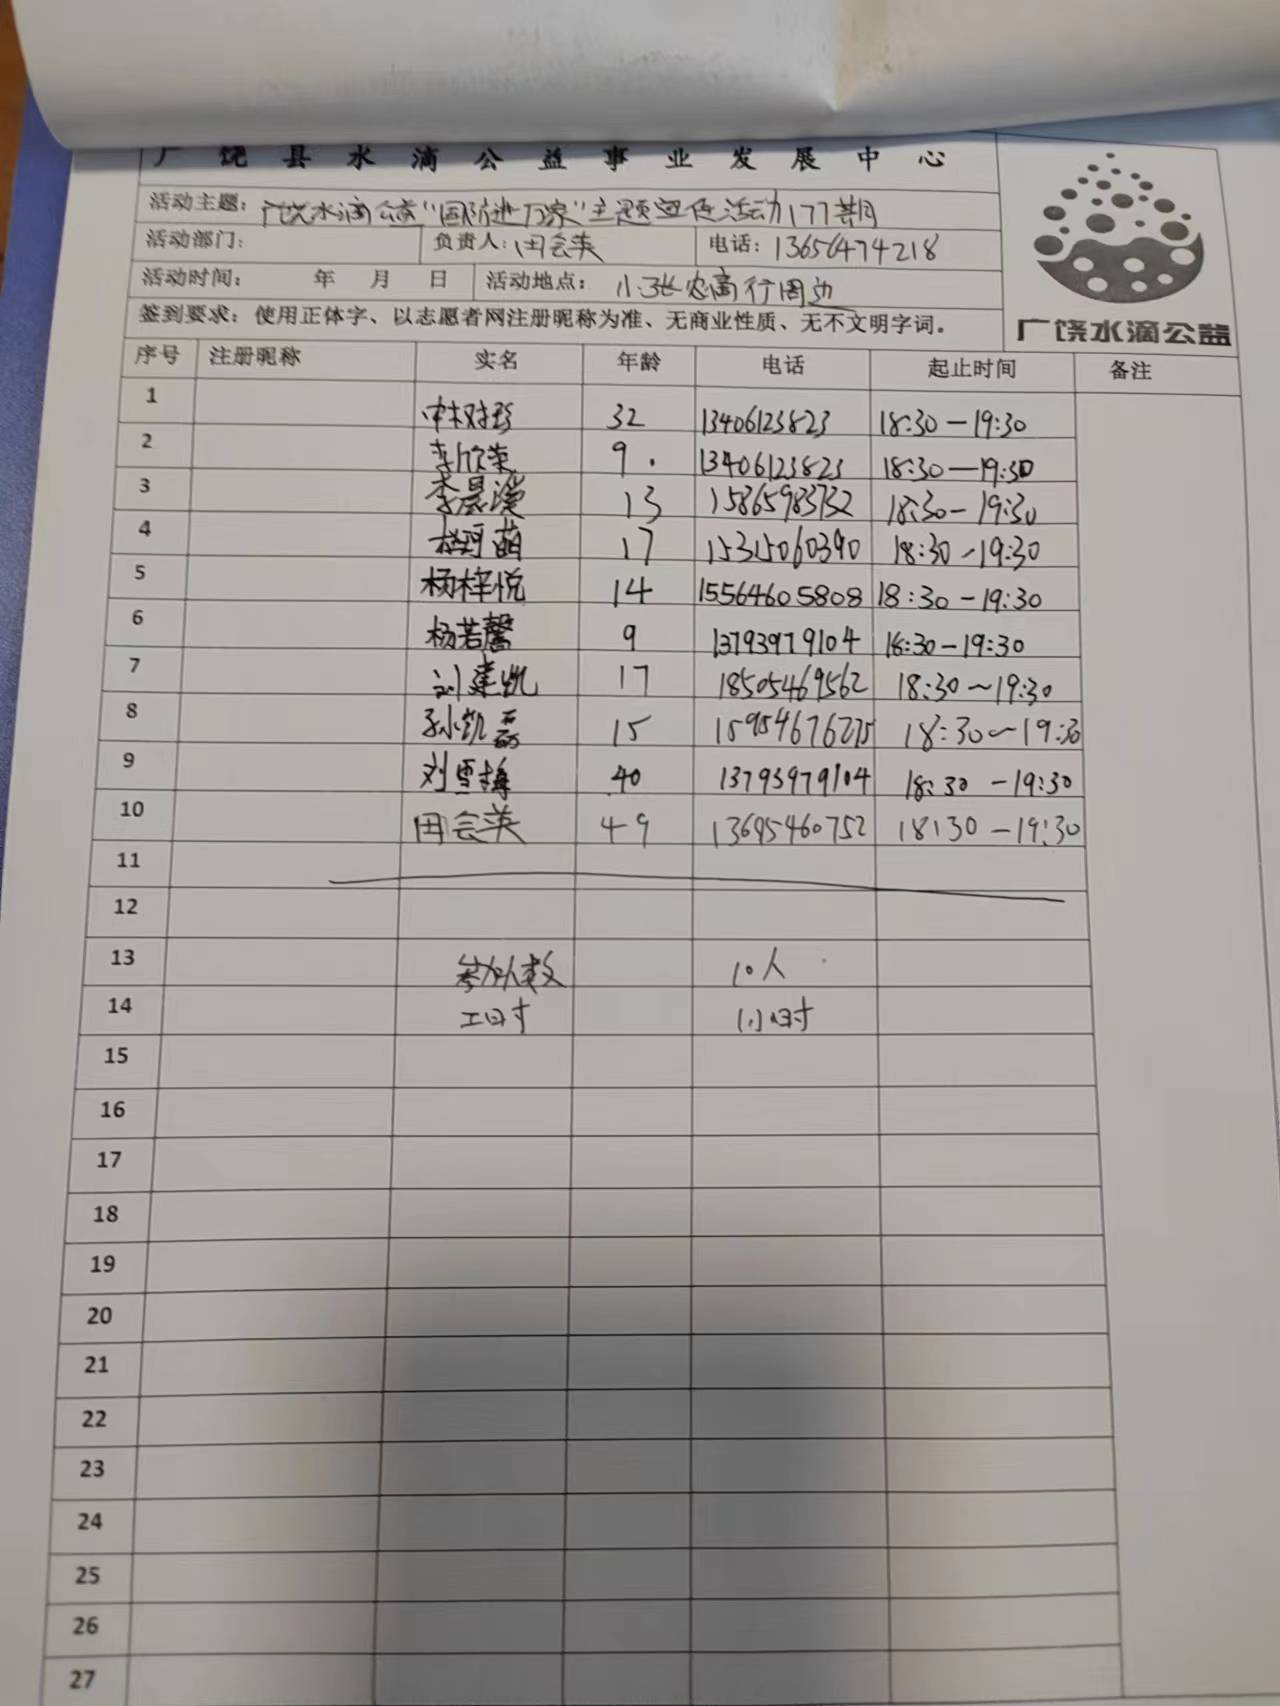 广饶县水滴公益事业发展中心
活动主题：广饶水滴公益"国防进万家"主题宣传活动177期
活动部门： 负责人：田会英 电话：13656474218
活动时间： 年 月 日 活动地点：小张农商行周边
签到要求：使用正体字、以志愿者网注册昵称为准、无商业性质、无不文明字词。
广饶水滴公益
序号 注册昵称 实名 年龄 电话 起止时间 备注
1 32 13406123823 18:30-19:30
2 李欣荣 9. 13406123823 18:30-19:30
3 李晨溪 13 15865983732 18:30-19:30
4 17 15315060390 18:30-19:30
5 杨梓悦 14 15564605808 18:30-19:30
6 杨若馨 9 13793979104 18:30-19:30
7 刘建凯 17 18505469562 18:30~19:30
8 孙凯磊 15 15954676275 18:30~19:30
9 刘雪梅 40 13793979104 18:30-19:30
10 田会英 49 13695460752 18:30-19:30
11
12
13 参加人数 10人
14 工时 1小时
15
16
17
18
19
20
21
22
23
24
25
26
27